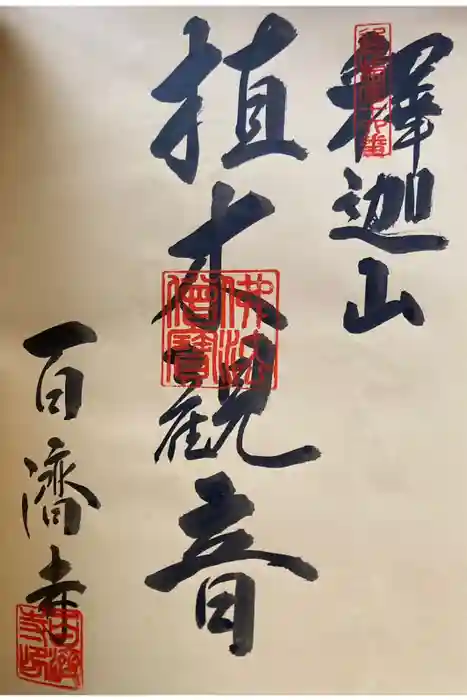 釋迦山
植木観音
百濟寺
佛法僧寶